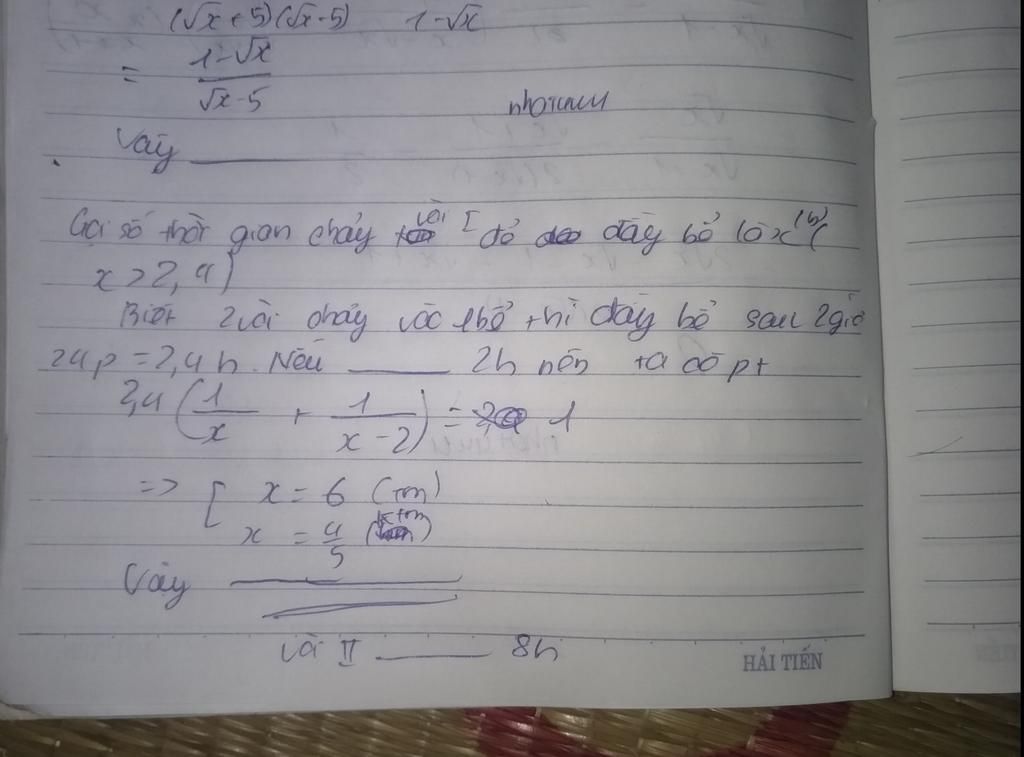 (√x + 5)(√x - 5) 1 - √x
= (1 - √x)/(√x - 5)
Vậy
Gọi số thời gian chảy vòi I đổ đầy bể là x (h) (
x > 2,4)
Biết 2 vòi chảy vào 1 bể thì đầy bể sau 2 giờ
24p = 2,4 h. Nếu ——— 2h nên ta có pt
2,4 (1/x + 1/(x - 2)) = 1
=> [ x = 6 (tm)
x = 4/5 (ktm)
Vậy
vòi II ——— 8h
HẢI TIẾN